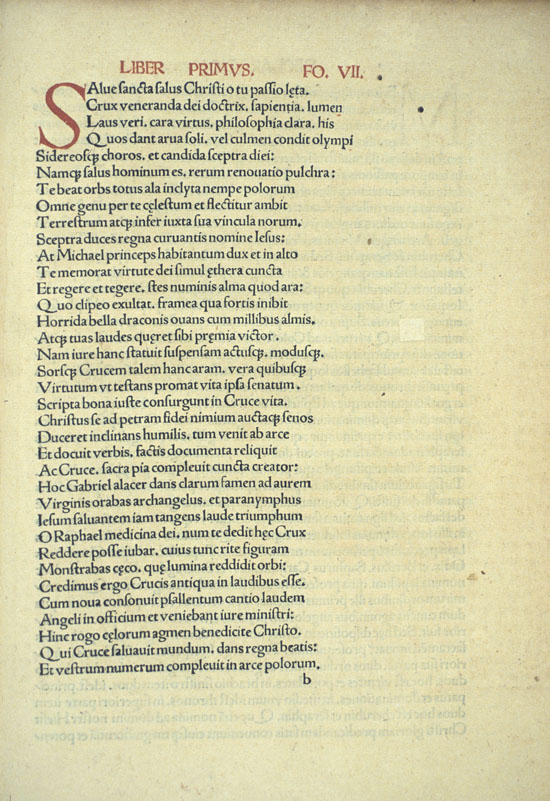 LIBER PRIMVS. FO. VII.
SAlue sancta salus Christi o tu passio lęta.
Crux veneranda dei doctrix, sapientia, lumen
Laus veri, cara virtus, philosophia clara, his
Quos dant arua soli, vel culmen condit olympi
Sidereoscꝫ choros, et candida sceptra diei:
Namcꝫ salus hominum es, rerum renouatio pulchra:
Te beat orbs totus ala inclyta nempe polorum
Omne genu per te cęlestum et flectitur ambit
Terrestrum atcꝫ infer iuxta sua vincula norum,
Sceptra duces regna curuantis nomine Iesus:
At Michael princeps habitantum dux et in alto
Te memorat virtute dei simul ęthera cuncta
Et regere et tegere, stes numinis alma quod ara:
Quo clipeo exultat, framea qua fortis inibit
Horrida bella draconis ouans cum millibus almis,
Atcꝫ tuas laudes quęret sibi pręmia victor.
Nam iure hanc statuit suspensam actuscꝫ, moduscꝫ,
Sorscꝫ Crucem talem hanc aram, vera quibuscꝫ
Virtutum vt testans promat vita ipsa senatum,
Scripta bona iuste consurgunt in Cruce vita,
Christus se ad petram fidei nimium auctacꝫ senos
Duceret inclinans humilis, tum venit ab arce
Et docuit verbis, factis documenta reliquit
Ac Cruce, sacra pia compleuit cuncta creator:
Hoc Gabriel alacer dans clarum famen ad aurem
Virginis orabas archangelus, et paranymphus
Iesum saluantem iam tangens laude triumphum
O Raphael medicina dei, num te dedit hęc Crux
Reddere posse iubar, cuius tunc rite figuram
Monstrabas cęco, quę lumina reddidit orbi:
Credimus ergo Crucis antiqua in laudibus esse,
Cum noua consonuit psallentum cantio laudem
Angeli in officium et veniebant iure ministri:
Hinc rogo cęlorum agmen benedicite Christo,
Qui Cruce saluauit mundum, dans regna beatis:
Et vestrum numerum compleuit in arce polorum,
b